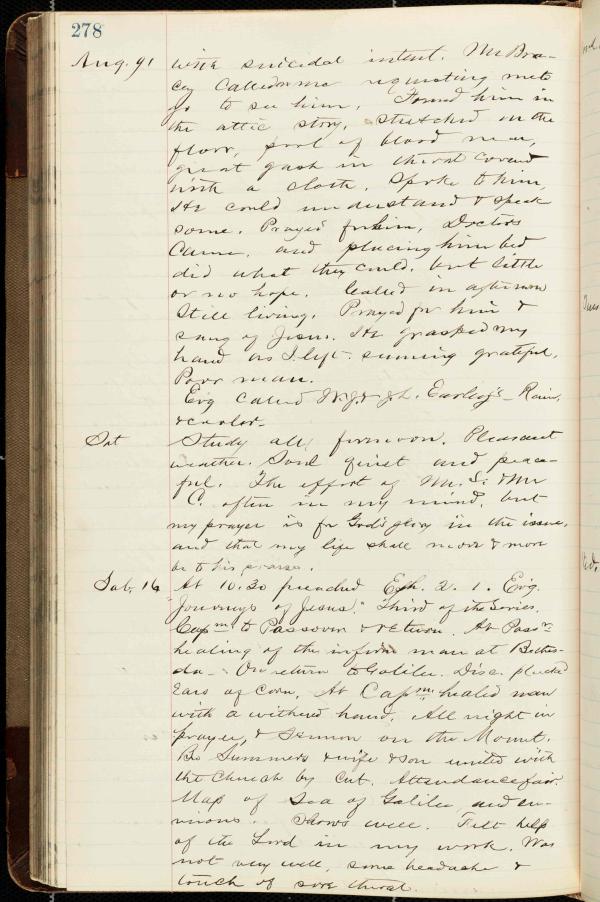 278
Aug. 91 with suicidal intent. Mr Bra-
cey called on me requesting me to
go to see him. Found him in
the attic story, stretched on the
floor, pool of blood near,
great gash in throat covered
with a cloth. Spoke to him,
He could understand & speak
some. Prayed for him, Doctors
came, and placing him bed
did what they could, but little
or no hope. Called in afternoon
Still living. Prayed for him &
sang of Jesus. He grasped my
hand as I left - seeming grateful.
Poor man.
Evg called Earley's - Rain,
& cooler -
Sat Study all forenoon. Pleasant
weather. Soul quiet and peace-
ful. The effort of Mr. S. & Mr
C. often in my mind, but
my prayer is for God's glory in the issue,
and that my life shall more & more
be to his praise.
Sab. 16 At 10.30 preached Eph. 2. 1. Evg.
"Journeys of Jesus." Third of the series.
Capm to Passover & return. At Passr
healing of the infirm man at Bethes-
da - On return to Galilee. Disc. plucked
Ears of Corn, At Capm. healed man
with a withered hand. All night in
prayer, & Sermon on the Mount.
Bro Summers & wife & son united with
the Church by Cert. Attendance fair.
Map of Sea of Galilee, and en-
virons. Shows well. Felt help
of the Lord in my work. Was
not very well, some headache &
touch of sore throat.